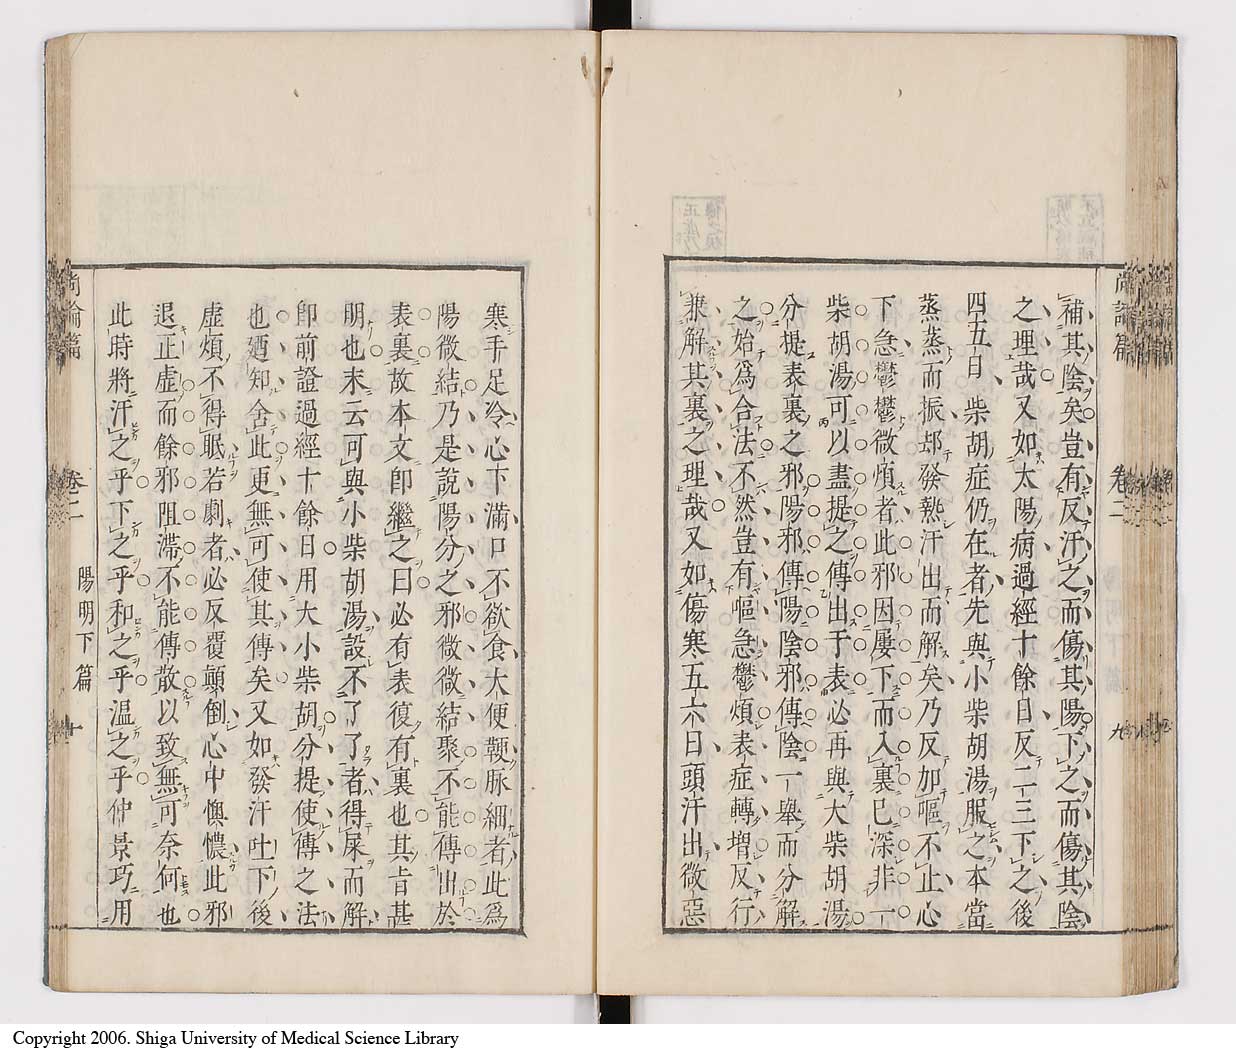 尚論篇
卷二
九
補其陰矣豈有反汗之而傷其陽下之而傷其陰
之理哉又如太陽病過經十餘日反二三下之後
四五日柴胡症仍在者先與小柴胡湯服之本當
蒸蒸而振却發熱汗出而解矣乃反加嘔不止心
下急鬱鬱微煩者此邪因屡下而入裏已深非一
柴胡湯可以盡提之傳出于表必再與大柴胡湯
分提表裏之邪陽邪傳陽陰邪傳陰一舉而分解
之始爲合法不然豈有嘔急鬱煩表症轉增反行
兼解其裏之理哉又如傷寒五六日頭汗出微惡
寒手足冷心下滿口不欲食大便鞕脉細者此爲
陽微結乃是說陽分之邪微微結聚不能傳出於
表裏故本文卽繼之曰必有表復有裏也其旨甚
明也末云可與小柴胡湯設不了了者得屎而解
卽前證過經十餘日用大小柴胡分提使傳之法
也廼知舍此更無可使其傳矣又如發汗吐下後
虛煩不得眠若劇者必反覆顛倒心中懊憹此邪
退正虛而餘邪阻滯不能傳散以致無可奈何也
此時將汗之乎下之乎和之乎溫之乎仲景巧用
尚論篇
卷二
陽明下篇
十
Copyright 2006. Shiga University of Medical Science Library